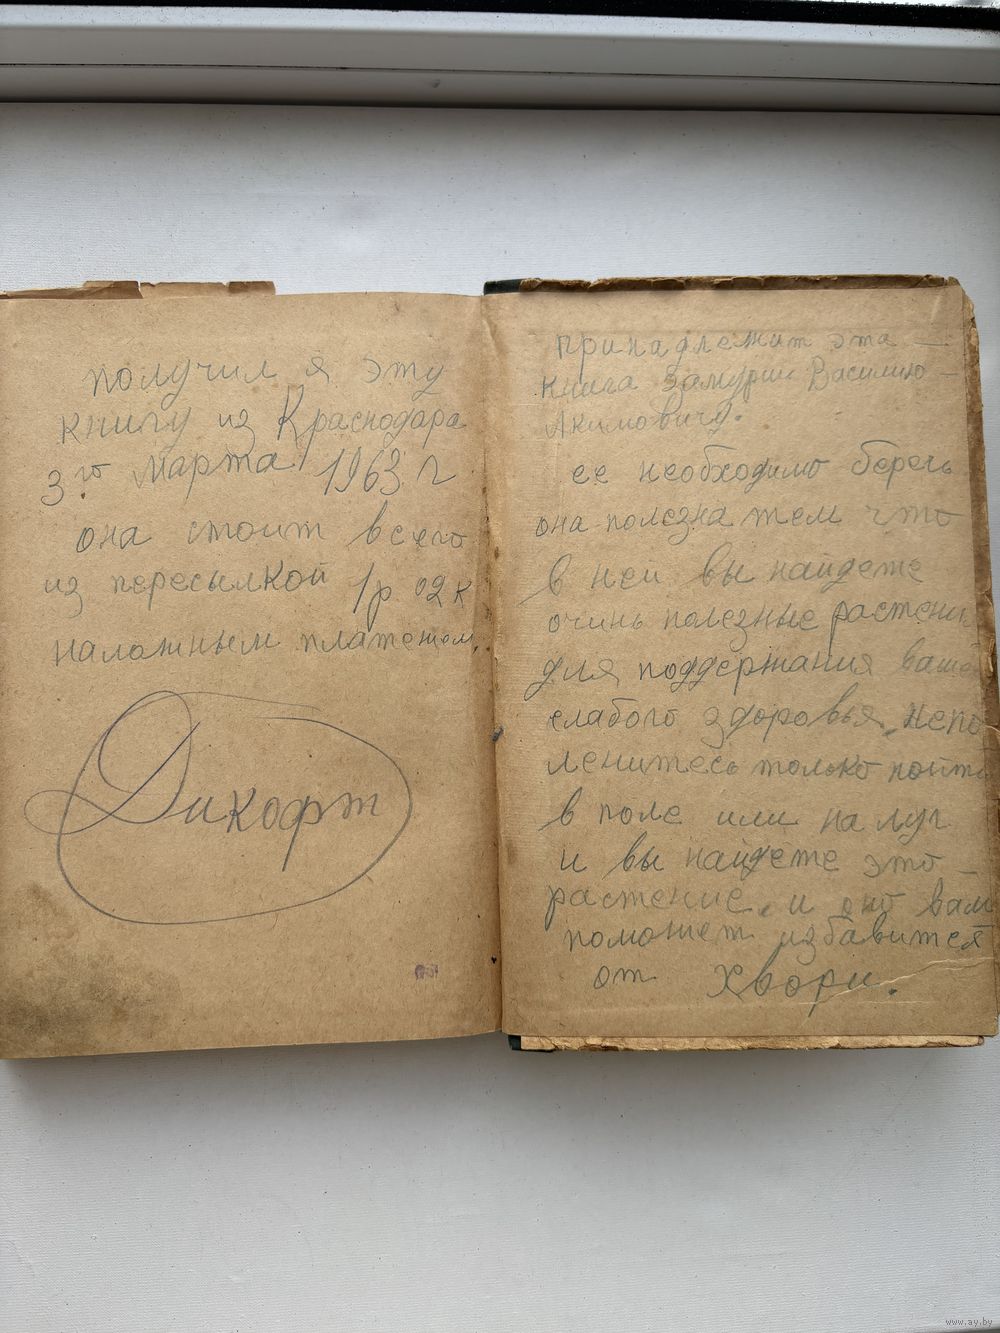 получил я эту
книгу из Краснодара
3го марта 1963 г
она стоит всего
из пересылкой 1р 02к
наложным платежем.
Дикофт
принадлежит эта —
книга Замурий Василию —
Акимовичу.
ее необходимо беречь
она полезна тем что
в ней вы найдете
очинь полезные растени
для поддержания ваше
слабого здоровья. Непо
ленитесь только пойти
в поле или на луг
и вы найдете это
растение. и оно вам
поможет избавится
от хвори.
www.ay.by